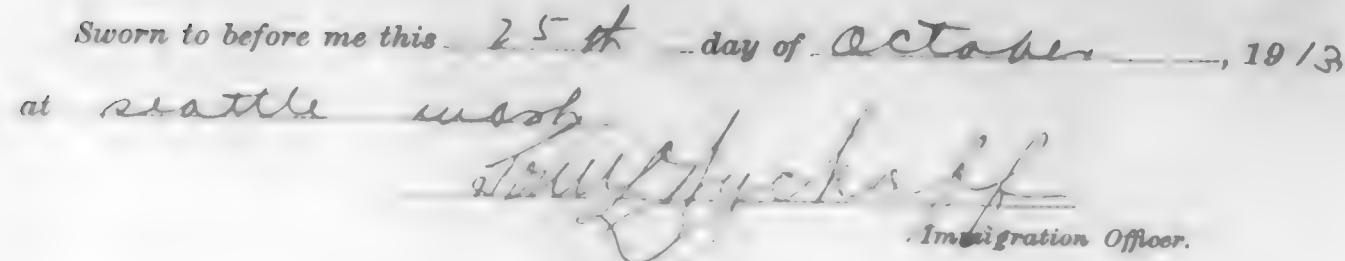 Sworn to before me this 25th day of October, 1913
at seattle wash.
Immigration Officer.